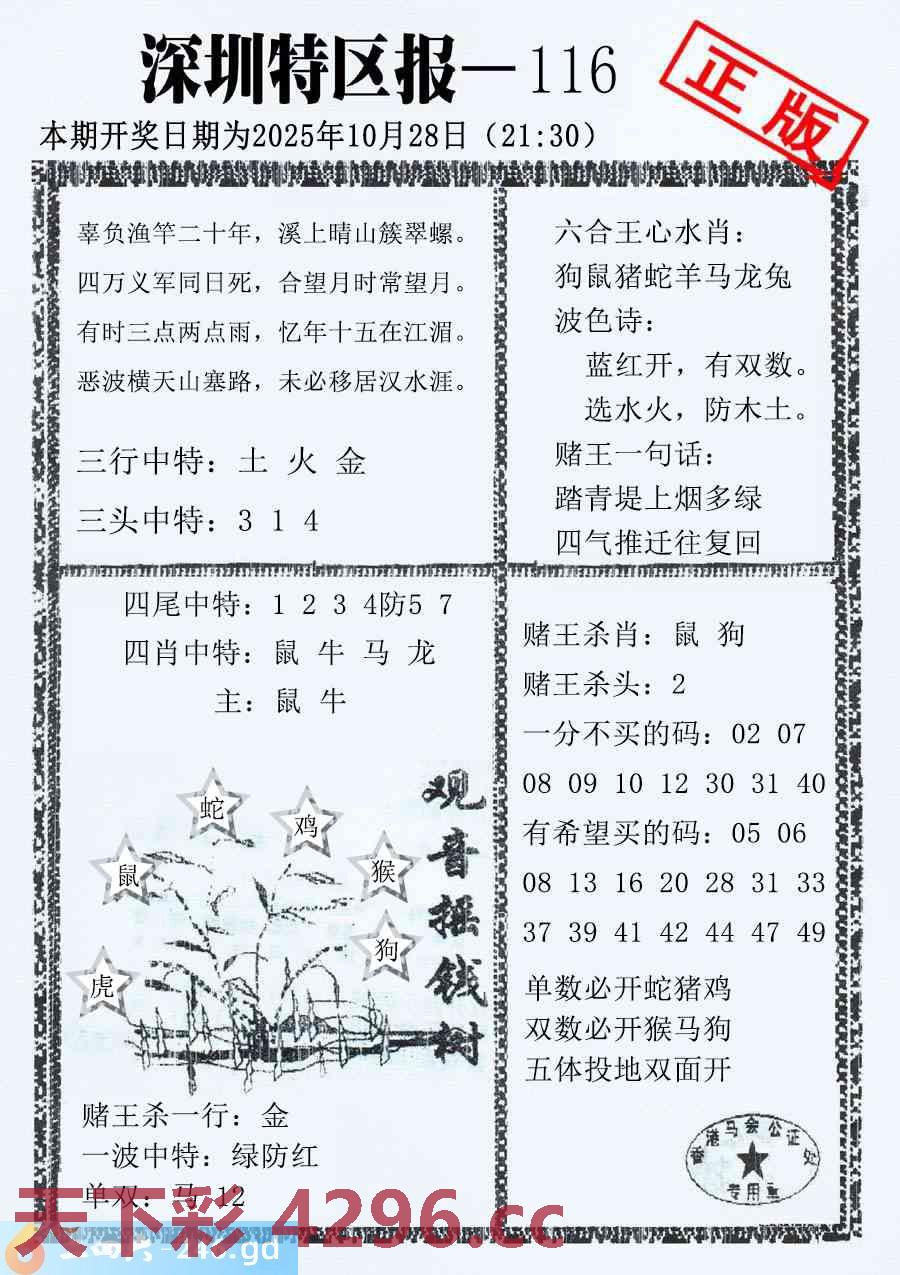 深圳特区报—116
正版
本期开奖日期为2025年10月28日（21:30）
辜负渔竿二十年，溪上晴山簇翠螺。
四万义军同日死，合望月时常望月。
有时三点两点雨，忆年十五在江湄。
恶波横天山塞路，未必移居汉水涯。
三行中特：土 火 金
三头中特：3 1 4
六合王心水肖：
狗鼠猪蛇羊马龙兔
波色诗：
蓝红开，有双数。
选水火，防木土。
赌王一句话：
踏青堤上烟多绿
四气推迁往复回
四尾中特：1 2 3 4防5 7
四肖中特：鼠 牛 马 龙
主：鼠 牛
观音摇钱树
蛇
鸡
鼠
猴
狗
虎
赌王杀一行：金
一波中特：绿防红
单双：马 12
赌王杀肖：鼠 狗
赌王杀头：2
一分不买的码：02 07
08 09 10 12 30 31 40
有希望买的码：05 06
08 13 16 20 28 31 33
37 39 41 42 44 47 49
单数必开蛇猪鸡
双数必开猴马狗
五体投地双面开
香港马会公证处
专用章
天下彩 4296.cc
-247.gd